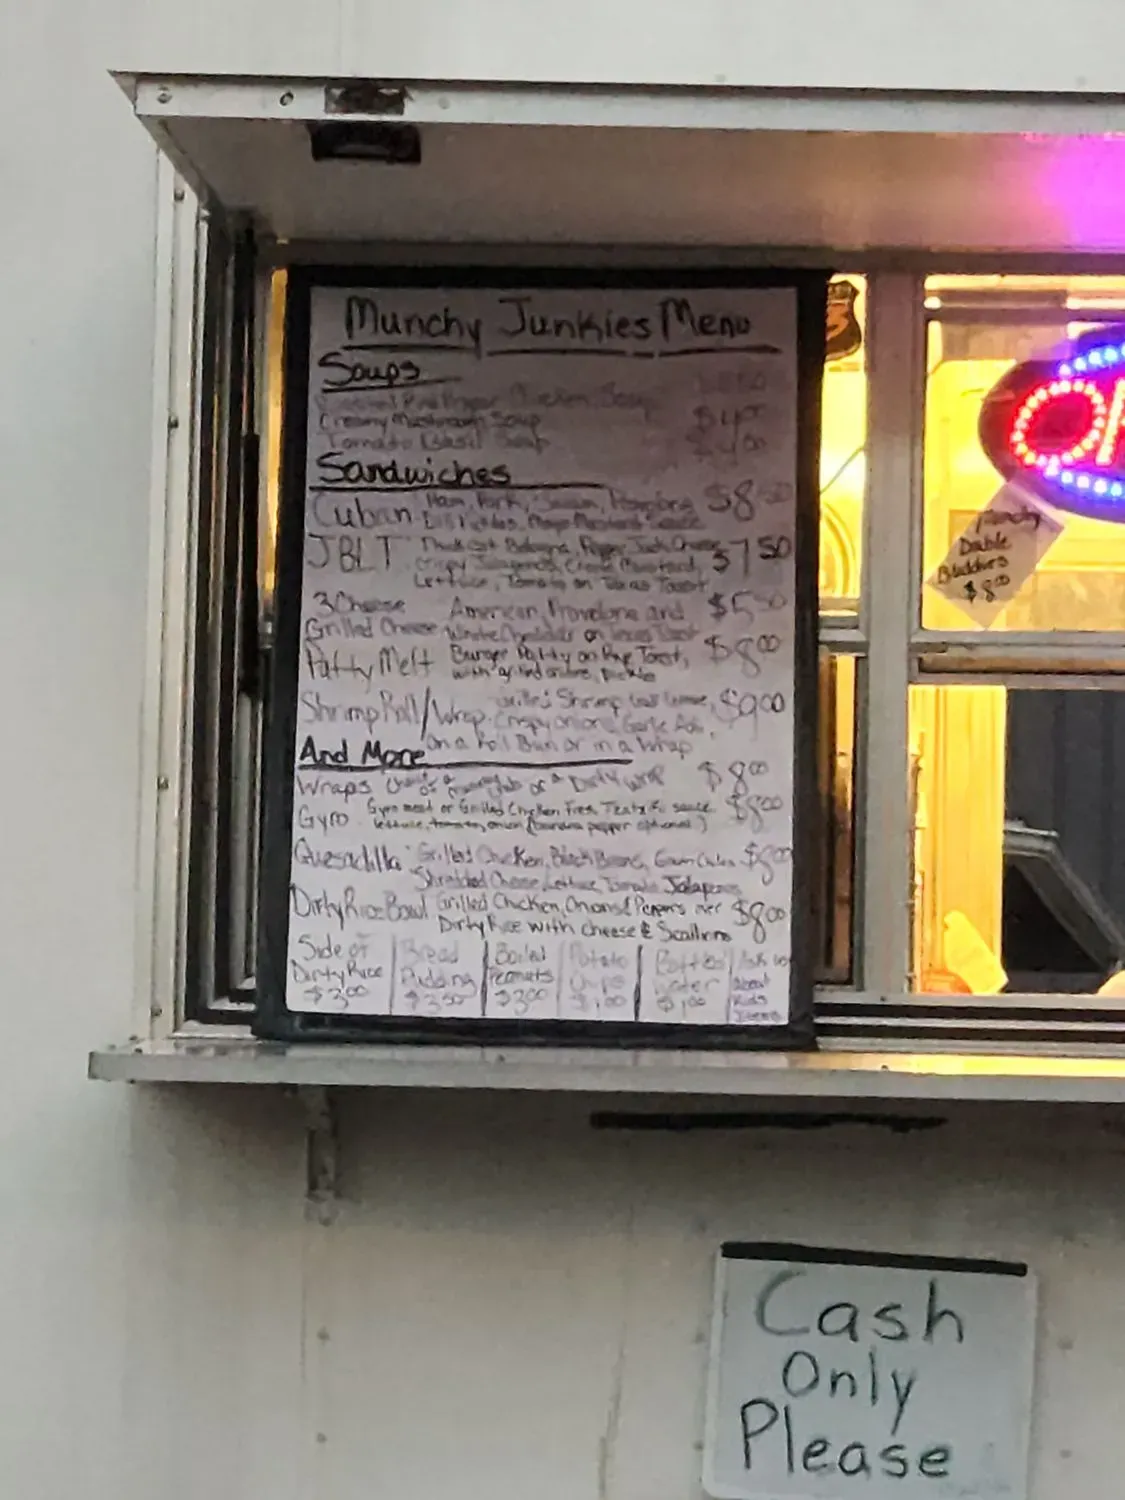 Munchy Junkies Menu
Soups
Chicken Soup
Creamy Mushroom Soup $4.00
Tomato Basil Soup $4.00
Sandwiches
Cuban Ham, Pork, $8.50
Dill Pickles, Mayo Mustard Sauce
JBLT Thick cut Bologna, Pepper Jack Cheese $7.50
Crispy Jalapenos, Creole Mustard,
Lettuce, Tomato on Texas Toast
3 Cheese American, Provolone and $5.50
Grilled Cheese White Cheddar on Texas Toast
Patty Melt Burger Patty on Rye Toast, $8.00
with grilled onions, pickle
Shrimp Roll/Wrap Grilled Shrimp $9.00
Crispy onions, Garlic Aoli,
on a Roll Bun or in a Wrap
And More
Wraps or a Dirty Wrap $8.00
Gyro Gyro meat or Grilled Chicken Fresh sauce $8.00
lettuce, tomato, onion (banana pepper optional)
Quesadilla Grilled Chicken, Black Beans, $8.00
Shredded Cheese, Lettuce, Tomato Jalapenos
Dirty Rice Bowl Grilled Chicken, Onions & Peppers over $8.00
Dirty Rice with cheese & Scallions
Side of Dirty Rice $3.00
Bread Pudding $3.50
Boiled Peanuts $3.00
Potato Chips $1.00
Bottled Water $1.00
Ask us about Kids Items
Double
$8.00
Cash
Only
Please